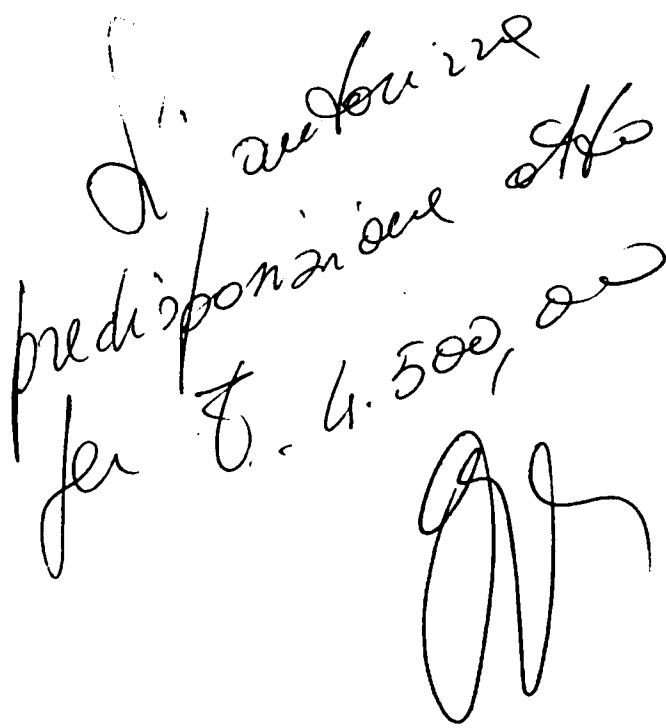 Si autorizza
predisposizione atto
per €. 4.500,00